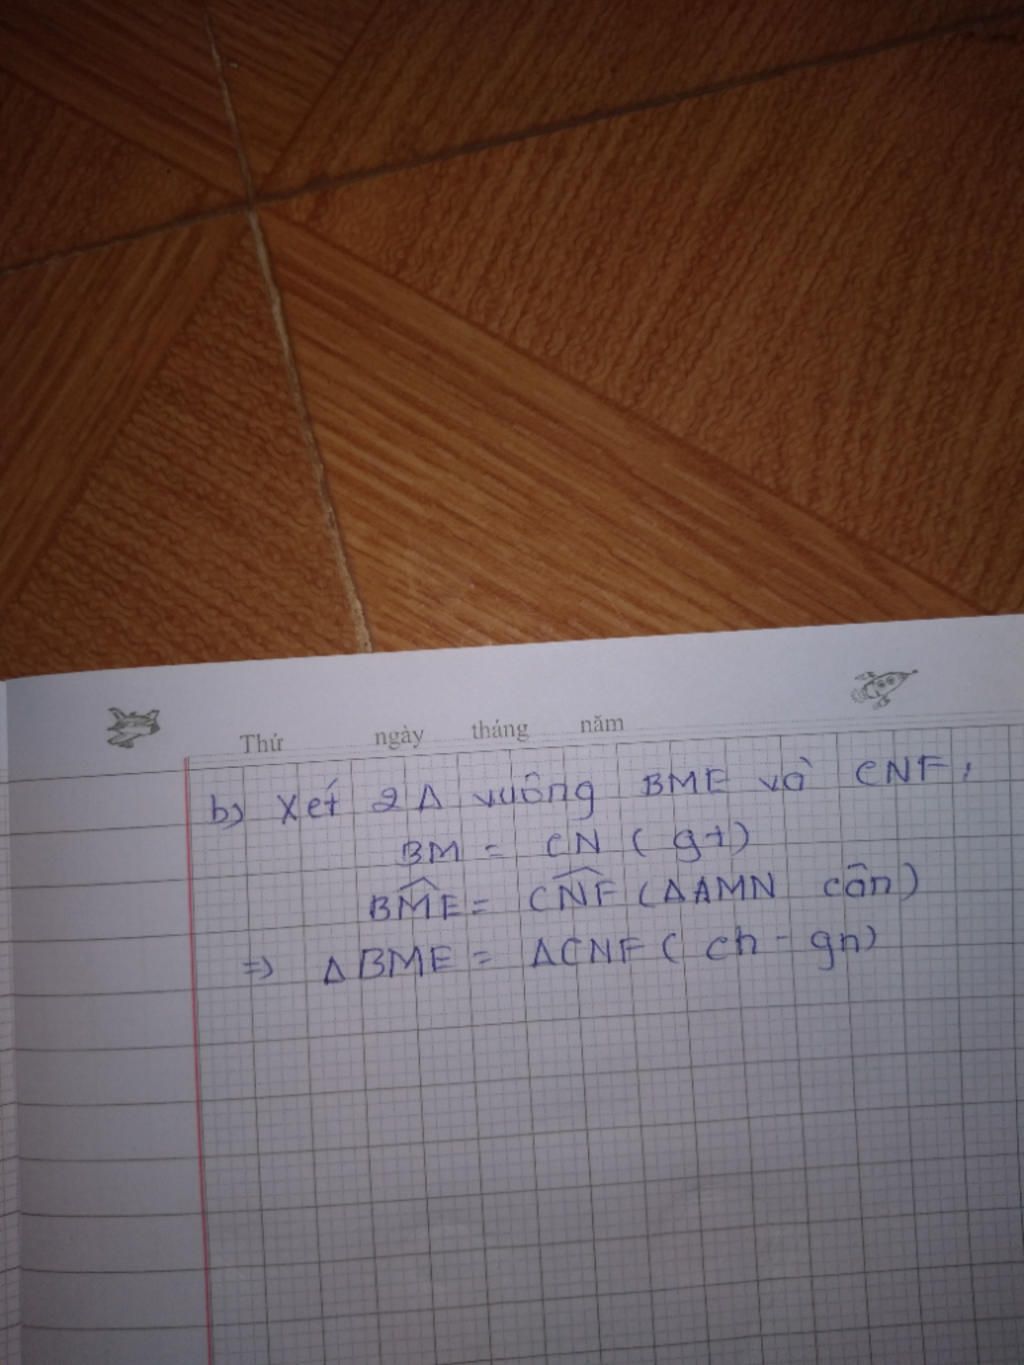 Thứ ngày tháng năm
b) Xét 2 Δ vuông BME và CNF,
BM = CN ( gt)
\widehat{BME} = \widehat{CNF} (ΔAMN cân)
=> ΔBME = ΔCNF ( ch - gn)